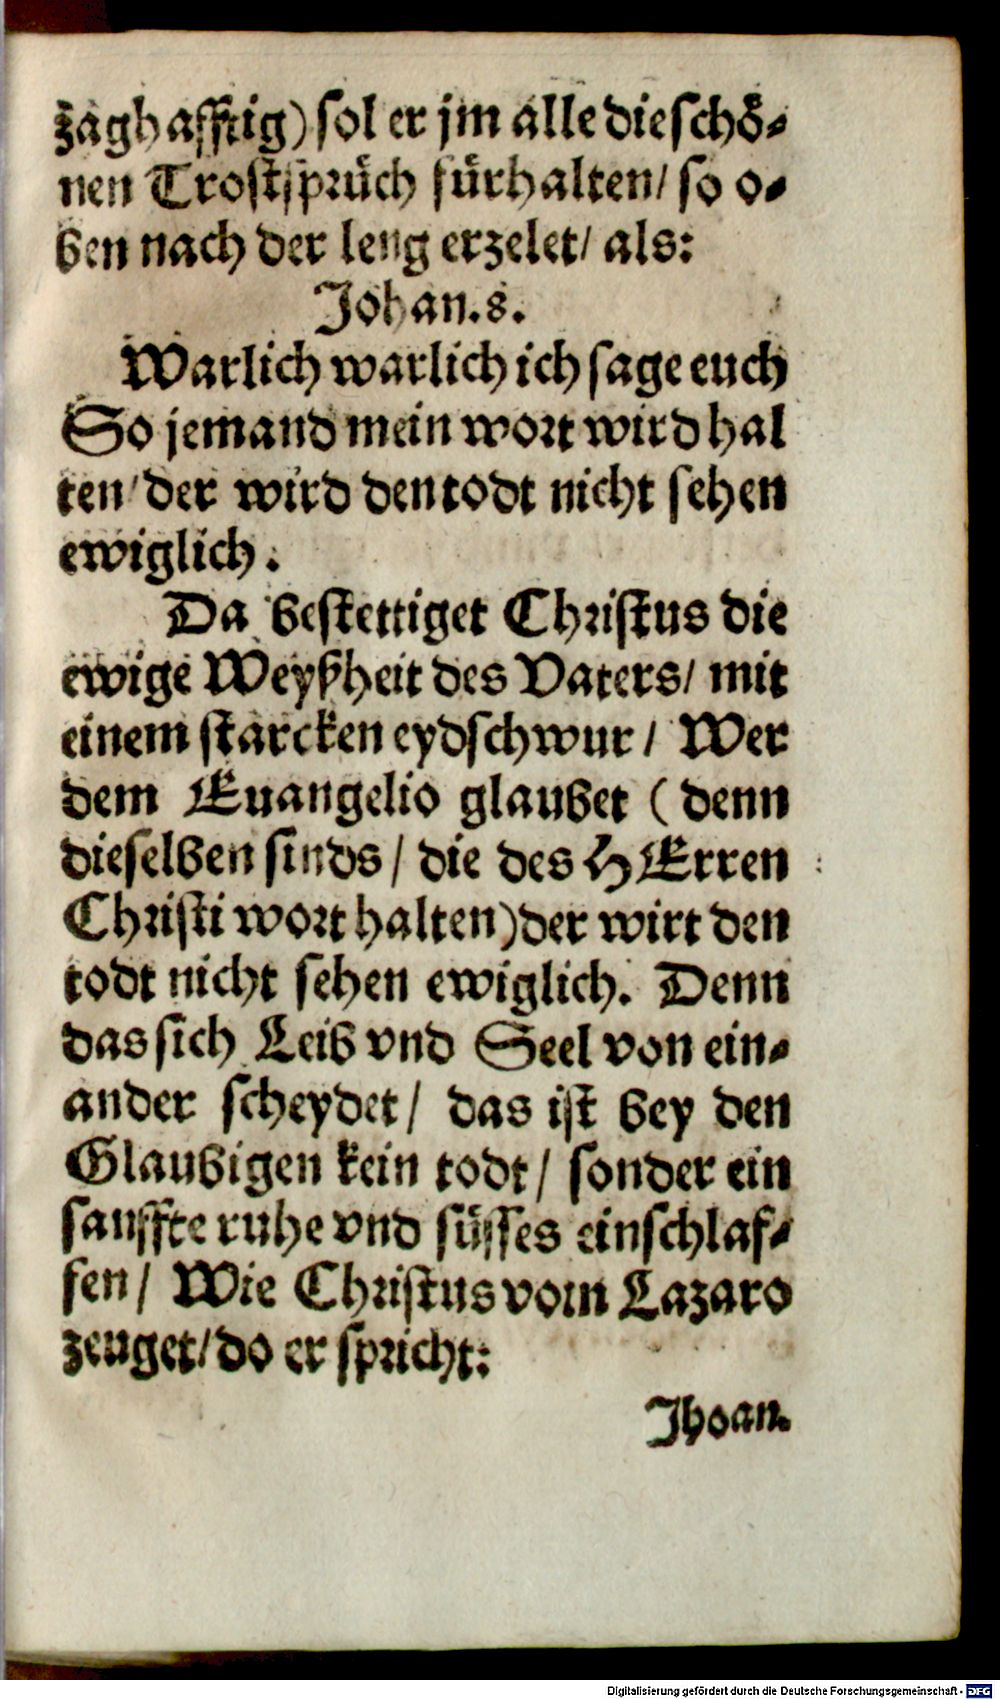 zaghafftig) sol er jm alle die schö-
nen Trostsprüch fürhalten/ so o-
ben nach der leng erzelet/ als:
Johan. 8.
Warlich warlich ich sage euch
So jemand mein wort wird hal
ten/ der wird den todt nicht sehen
ewiglich.
Da bestettiget Christus die
ewige Weyßheit des Vaters/ mit
einem starcken eydschwur/ Wer
dem Euangelio glaubet (denn
dieselben sinds/ die des HErren
Christi wort halten) der wirt den
todt nicht sehen ewiglich. Denn
das sich Leib vnd Seel von ein-
ander scheydet/ das ist bey den
Glaubigen kein todt/ sonder ein
sanffte ruhe vnd süsses einschlaf-
fen/ Wie Christus vom Lazaro
zeuget/ do er spricht:
Jhoan.
Digitalisierung gefördert durch die Deutsche Forschungsgemeinschaft - DFG